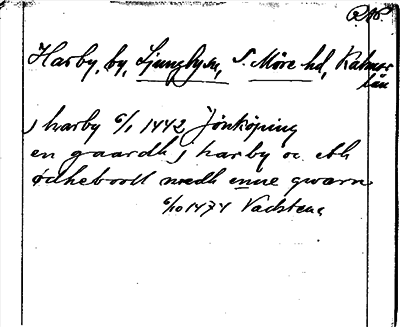 RAP.
Harby, by, Ljungby sn, S. Möre hd, Kalmar
län
j harby 6/1 1442 Jönköping
en gaardh j harby oc eth
ødhebool medh enne qwærn
6/10 1474 Vadstena